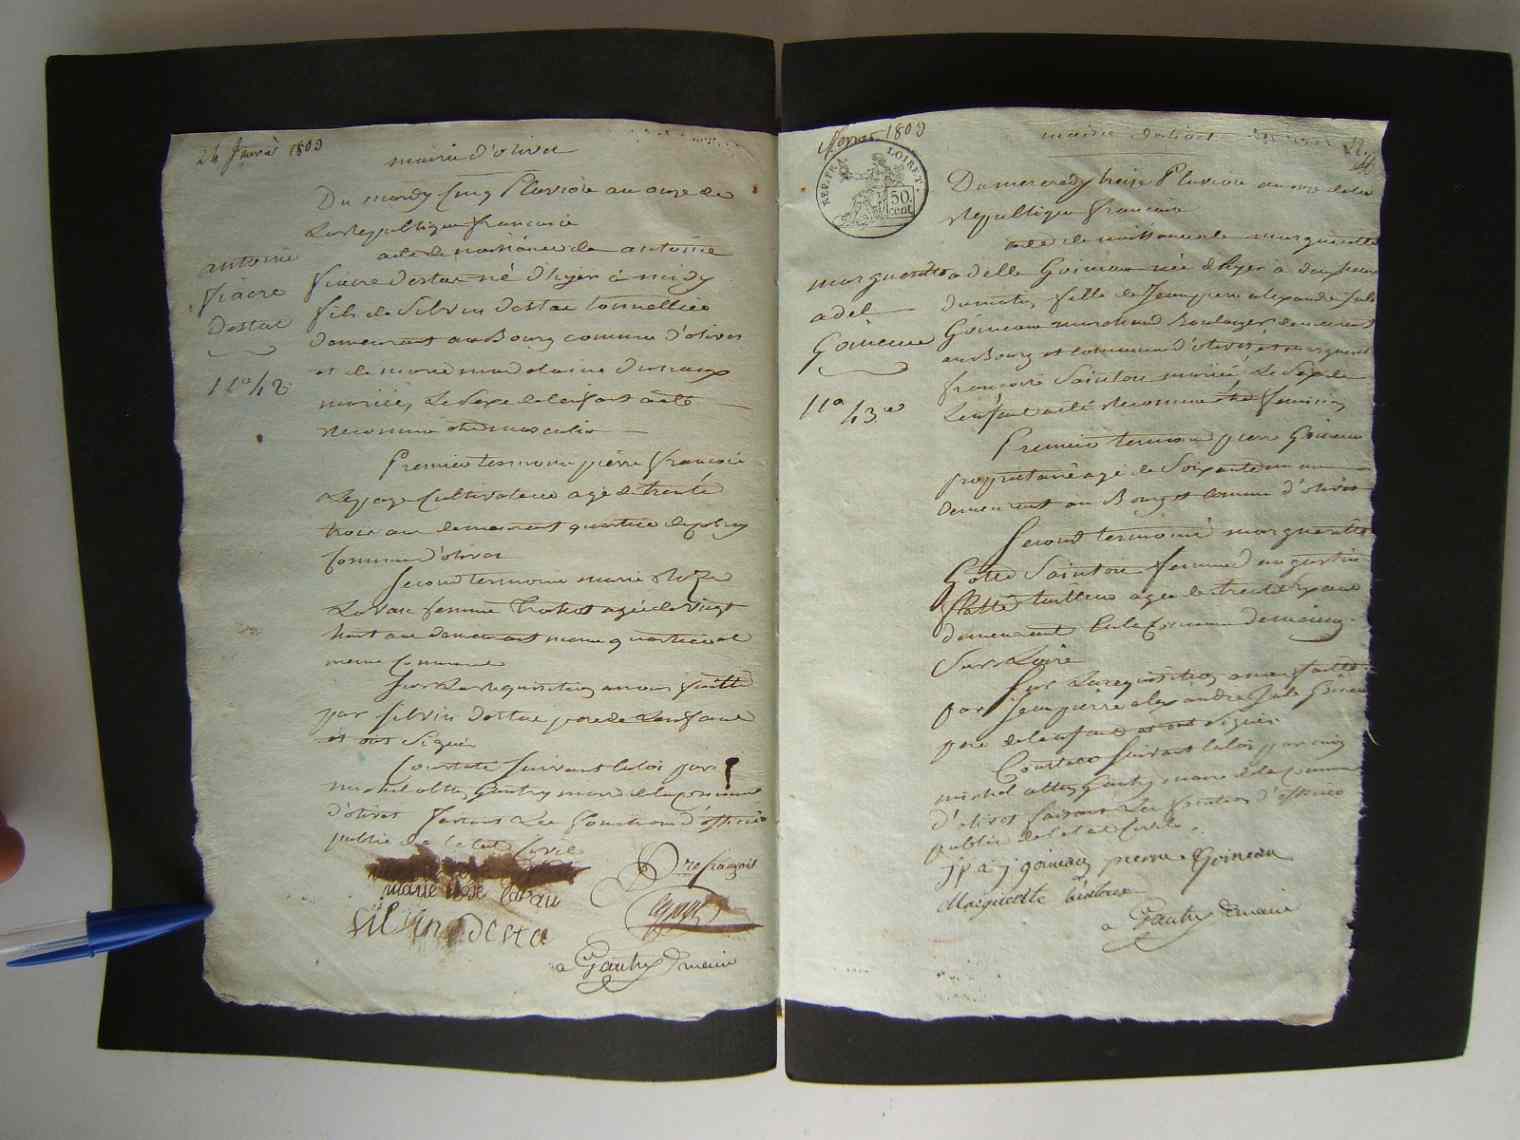 mairie d'olivet
Du mardy Cinq Pluviose an onze de
La Republique francaise
acte de naissance de antoine
fiacre destas né d'hyer à midy
fils de Silvin Destas tonnellier
demeurant au Bourg commune d'olivet
et de marie madelaine
mariée, Le Sexe de lenfant a été
reconnu être masculin
Premier temoin pierre francois
Lepage Cultivateur agé de trente
trois ans demeurant quartier
Commune d'olivet
Second temoin marie Roze
Lavau femme agée de vingt
huit ans demeurant meme quartier et
meme Commune
Sur La requisition a nous faitte
par Silvin destas pere de Lenfant
et ont Signé
Constaté Suivant la loi par
michel Gautry maire de la commune
d'olivet faisant Les fonctions d'officier
public de l'etat Civil
antoine
fiacre
Destas
11 a 42
marie rose lavau
silvin desta
francois
Gautry maire
1803
REP. FRA. LOIRET.
50 cent
mairie d'olivet
Du mercredy treize Pluviose an onze de la
Republique francaise
acte de naissance de margueritte
adelle Goineau née d'hyer à
du matin, fille de Jean pierre alexandre Jule
Goineau marchand Boulanger demeurant
au Bourg et commune d'olivet et de margueritte
francoise Sainton mariée, Le Sexe de
Lenfant a été reconnu être feminin
Premier temoin pierre Goineau
propriétaire agé de Soixante un ans
demeurant au Bourg et Commune d'olivet
Second temoin margueritte
Sainton femme augustin
tailleur agée de trente
demeurant Commune de
Sur Loire
Sur La requisition a nous faitte
par Jean pierre alexandre Jule Goineau
pere de lenfant et ont Signé
Constaté Suivant la loi par moy
michel Gautry maire de la commune
d'olivet faisant Les fonctions d'officier
public de l'etat Civil.
margueritte
adel
Goineau
11 a 43
j p a j goineau pierre Goineau
Margueritte
Gautry maire